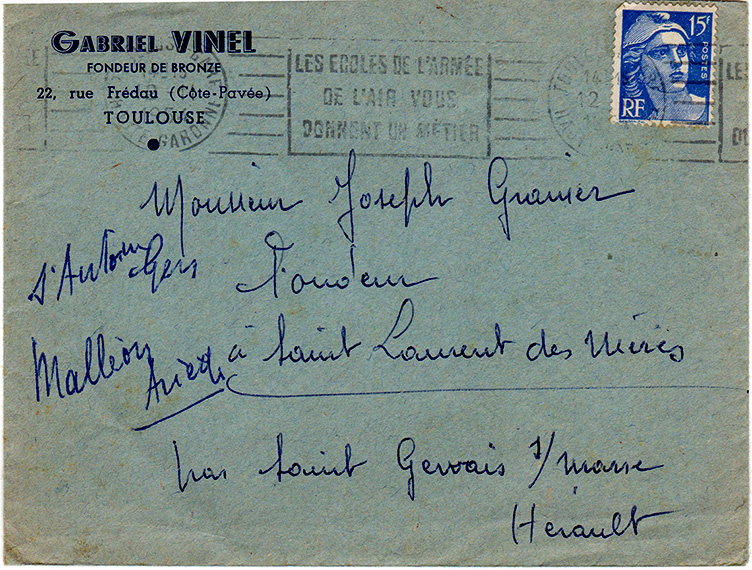 GABRIEL VINEL
FONDEUR DE BRONZE
22, rue Frédau (Côte-Pavée)
TOULOUSE
LES ECOLES DE L'ARMÉE
DE L'AIR VOUS
DONNENT UN MÉTIER
GARONNE
15F
POSTES
RF
Monsieur Joseph Granier
Fondeur
à Saint Laurent des Nières
par Saint Gervais s/mare
Hérault
S'Antonin
Gers
Malléon
Ariège